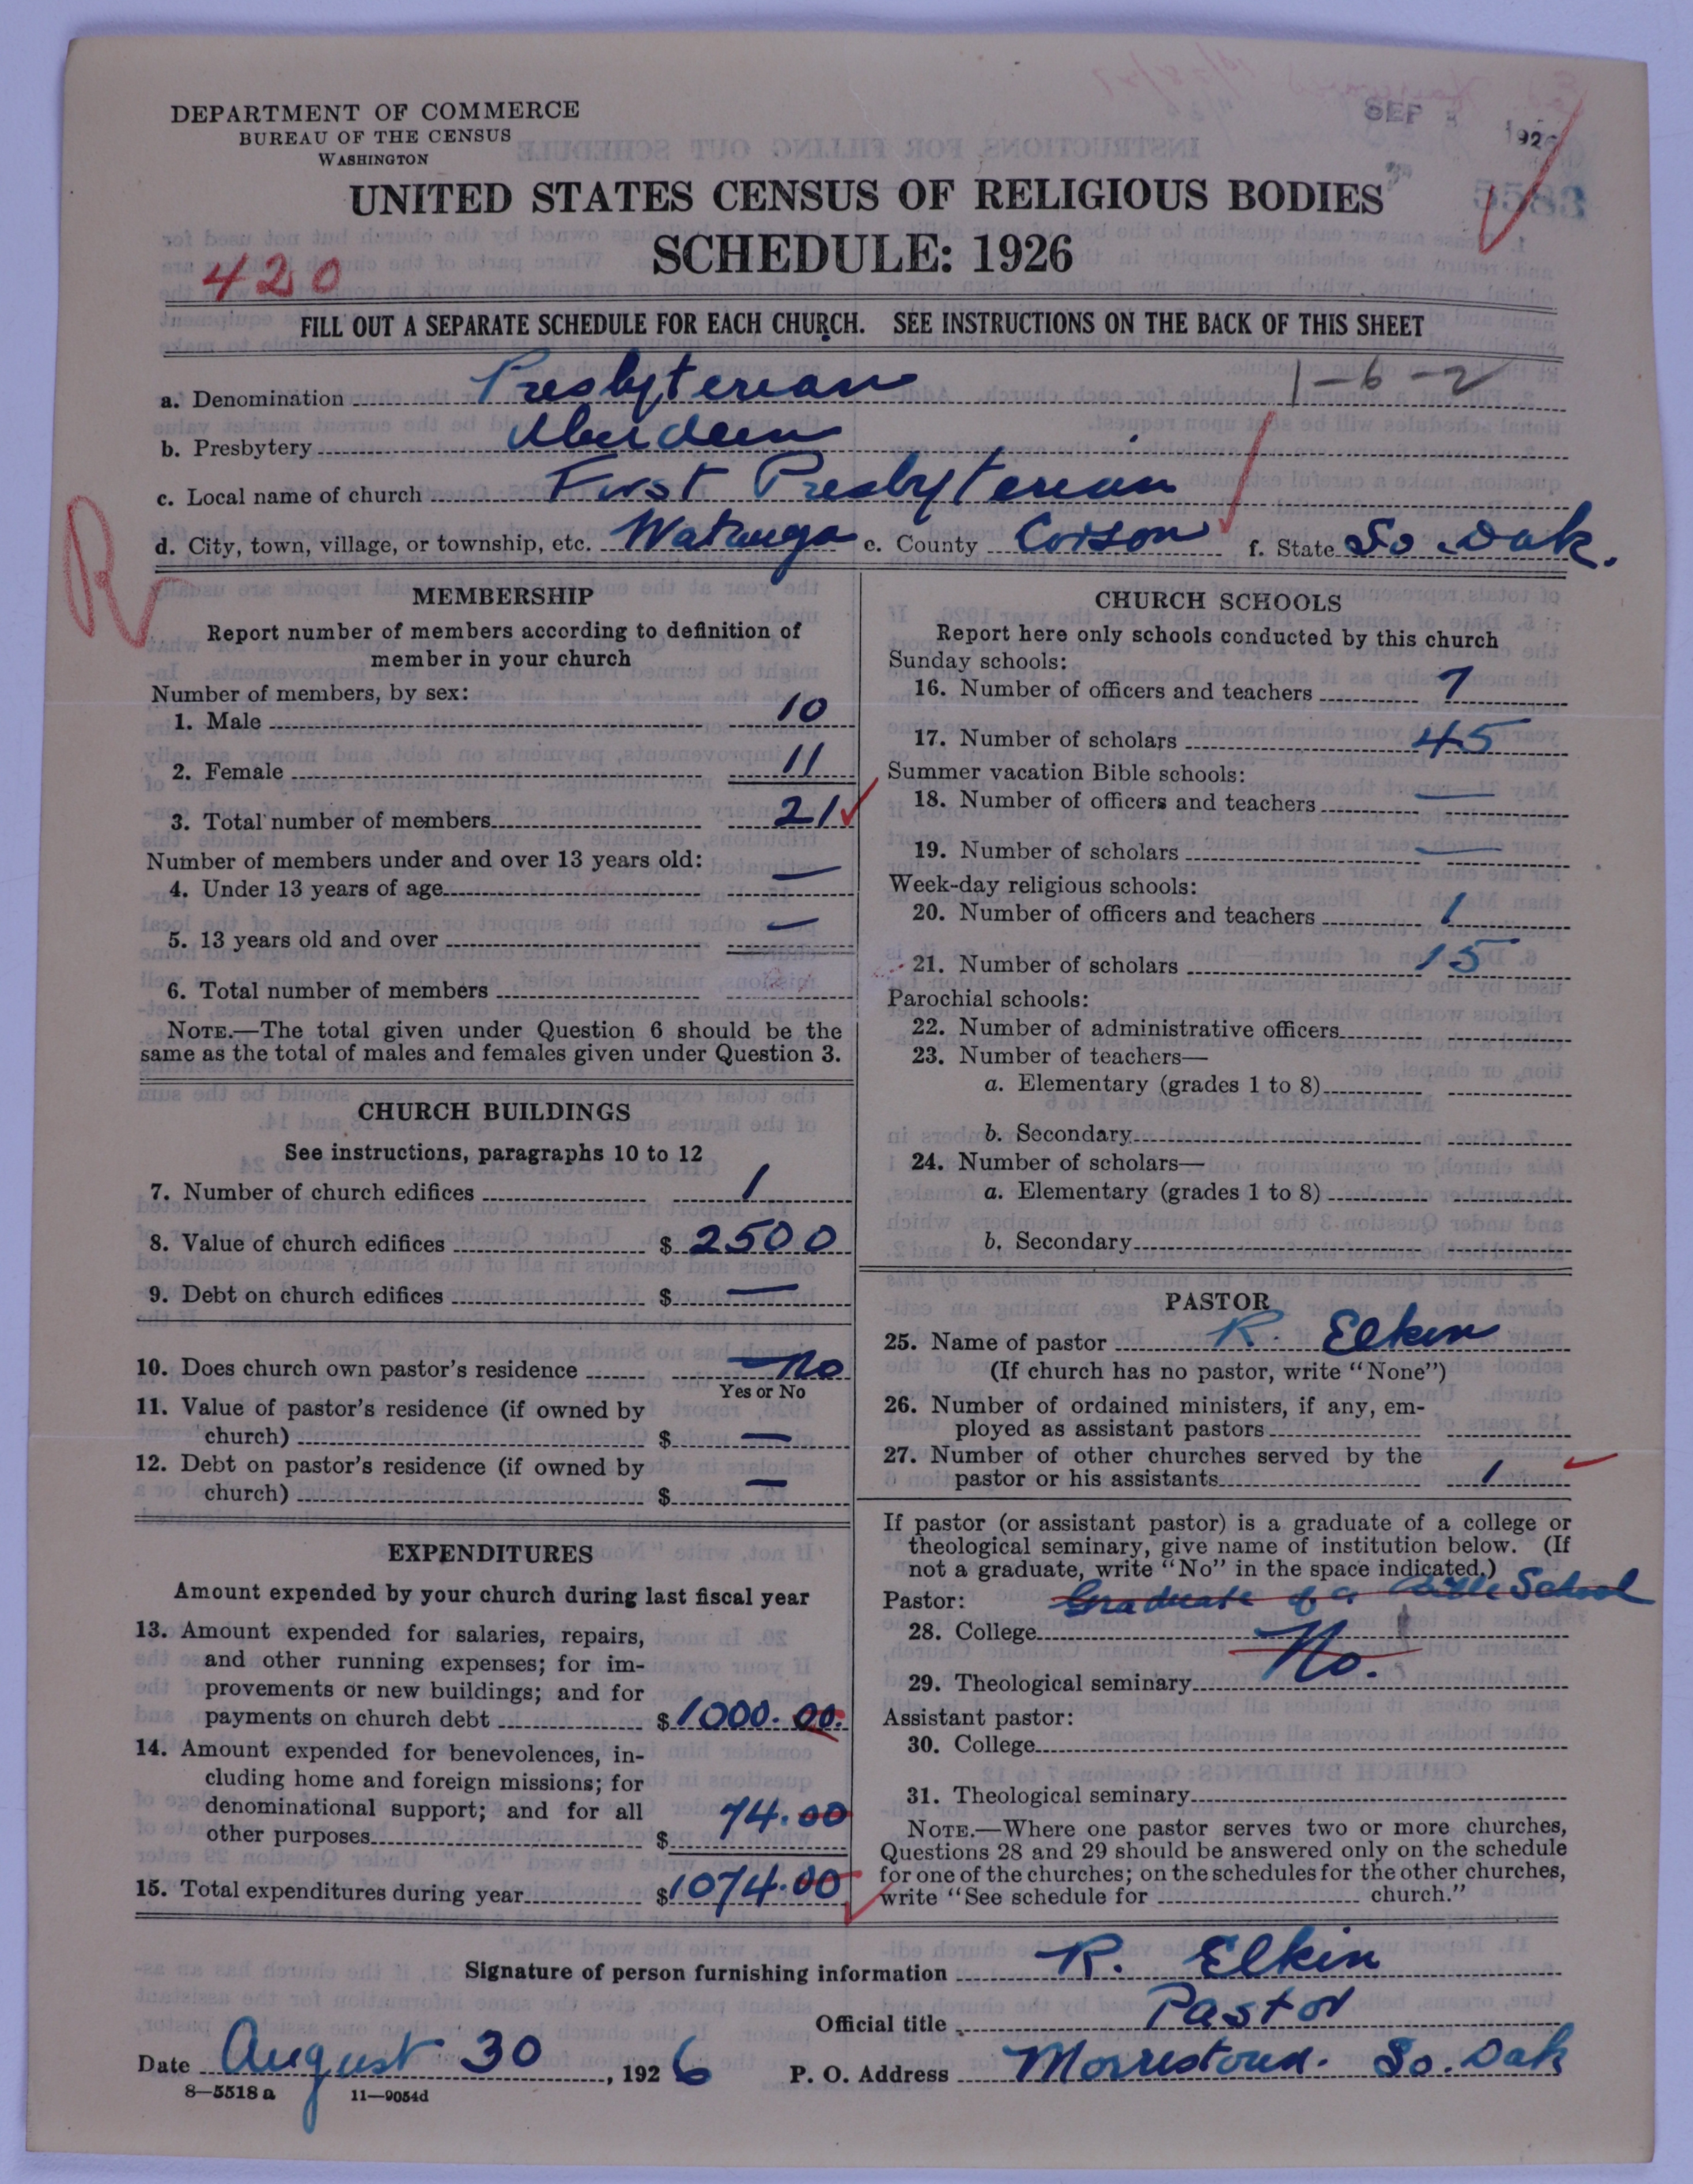 DEPARTMENT OF COMMERCE
BUREAU OF THE CENSUS
WASHINGTON
SEP 1926
UNITED STATES CENSUS OF RELIGIOUS BODIES
SCHEDULE: 1926
420
FILL OUT A SEPARATE SCHEDULE FOR EACH CHURCH. SEE INSTRUCTIONS ON THE BACK OF THIS SHEET
a. Denomination Presbyterian 1-6-2
b. Presbytery Aberdeen
c. Local name of church First Presbyterian
d. City, town, village, or township, etc. Watauga e. County Corson f. State So. Dak.
R
MEMBERSHIP
Report number of members according to definition of
member in your church
Number of members, by sex:
1. Male 10
2. Female 11
3. Total number of members 21
Number of members under and over 13 years old:
4. Under 13 years of age —
5. 13 years old and over —
6. Total number of members
NOTE.—The total given under Question 6 should be the
same as the total of males and females given under Question 3.
CHURCH BUILDINGS
See instructions, paragraphs 10 to 12
7. Number of church edifices 1
8. Value of church edifices $ 2500
9. Debt on church edifices $ —
10. Does church own pastor's residence No
Yes or No
11. Value of pastor's residence (if owned by
church) $ —
12. Debt on pastor's residence (if owned by
church) $ —
EXPENDITURES
Amount expended by your church during last fiscal year
13. Amount expended for salaries, repairs,
and other running expenses; for im-
provements or new buildings; and for
payments on church debt $ 1000.00.
14. Amount expended for benevolences, in-
cluding home and foreign missions; for
denominational support; and for all
other purposes $ 74.00
15. Total expenditures during year $ 1074.00
CHURCH SCHOOLS
Report here only schools conducted by this church
Sunday schools:
16. Number of officers and teachers 7
17. Number of scholars 45
Summer vacation Bible schools:
18. Number of officers and teachers —
19. Number of scholars —
Week-day religious schools:
20. Number of officers and teachers 1
21. Number of scholars 15
Parochial schools:
22. Number of administrative officers
23. Number of teachers—
a. Elementary (grades 1 to 8)
b. Secondary
24. Number of scholars—
a. Elementary (grades 1 to 8)
b. Secondary
PASTOR
25. Name of pastor R. Elkin
(If church has no pastor, write "None")
26. Number of ordained ministers, if any, em-
ployed as assistant pastors
27. Number of other churches served by the
pastor or his assistants 1
If pastor (or assistant pastor) is a graduate of a college or
theological seminary, give name of institution below. (If
not a graduate, write "No" in the space indicated.)
Pastor: Graduate of a Bible School
28. College
No.
29. Theological seminary
Assistant pastor:
30. College
31. Theological seminary
NOTE.—Where one pastor serves two or more churches,
Questions 28 and 29 should be answered only on the schedule
for one of the churches; on the schedules for the other churches,
write "See schedule for church."
Signature of person furnishing information R. Elkin
Official title Pastor
Date August 30, 1926 P. O. Address Morristown. So. Dak
8—5518a 11—9054d